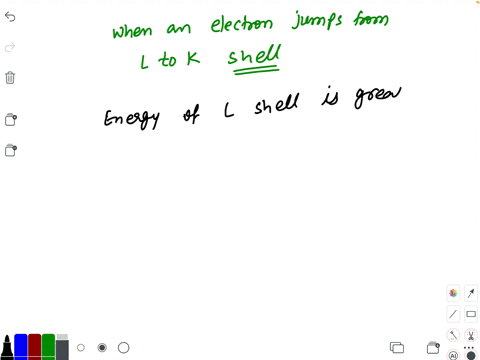 when an electron jumps from
L to K shell
Energy of L shell is grea